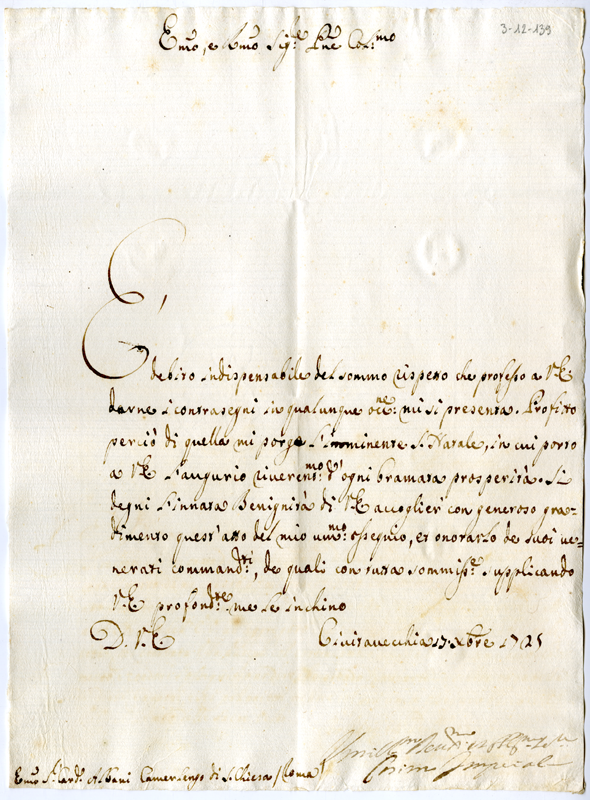 3-12-139
Em̃o, e Rm̃o Sig.re Pñe Col.mo
È
debito indispensabile del sommo rispetto che professo a V.E.
darne i contrasegni in qualunque occ.ne mi si presenta. Profitto
perciò di quella mi porge l'imminente S. Natale, in cui porto
a V.E. l'augurio riverent.mo d'ogni bramata prosperità. Si
degni l'innata Benignità di V.E. accoglier con generoso gra-
dimento quest'atto del mio um.mo ossequio, et onorarlo de suoi ve-
nerati command.ti, de quali con tutta sommiss.e supplicando
V.E. profond.te me le inchino
D. V.E. Civitavecchia 17. Xbre 1725
Em̃o S.r Card. Albani Camerlengo di S. Chiesa / Roma